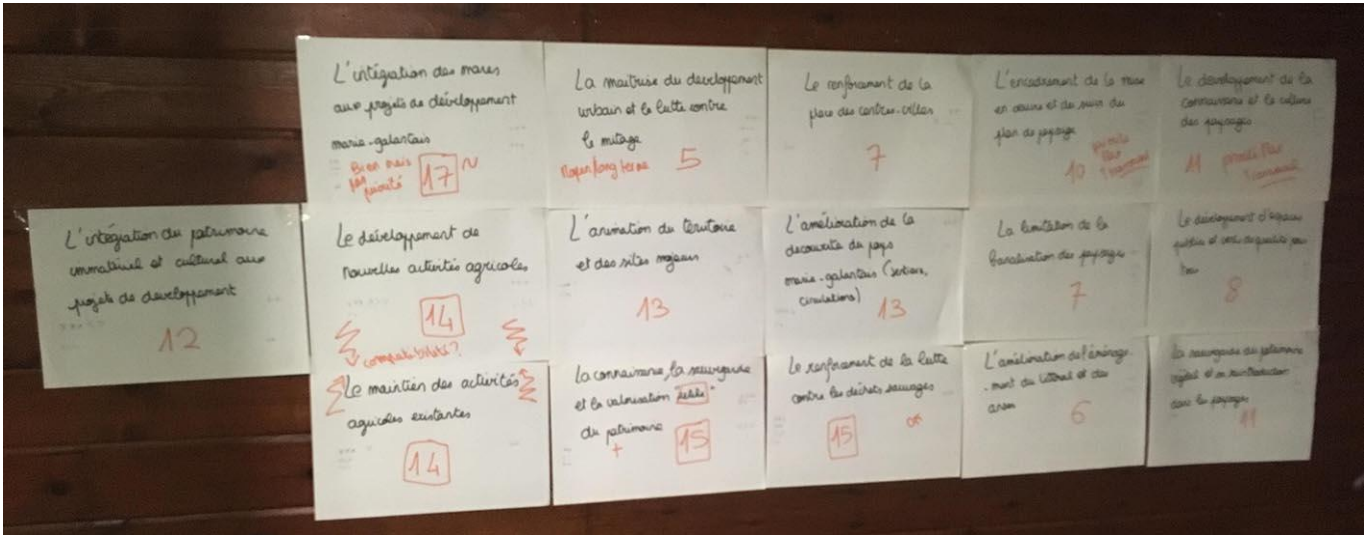 L'intégration des mares
aux projets de développement
marie-galantais
Bien mais
pas priorité
17 ~
La maitrise du developpement
urbain et la lutte contre
le mitage
Moyen/long terme 5
Le renforcement de la
place des centres-villes
7
L'encadrement de la mise
en œuvre et du suivi du
plan de paysage
10
Le développement de la
connaissance et la culture
des paysages
11
L'intégration du patrimoine
immatériel et culturel aux
projets de developpement
12
Le développement de
nouvelles activités agricoles
14
compatibilité?
L'animation du territoire
et des sites majeurs
13
L'amélioration de la
decouverte du pays
marie-galantais (sentiers,
circulations) 13
La limitation de la
banalisation des paysages
7
Le développement d'espaces
publics et de qualité pour
tous
8
Le maintien des activités
agricoles existantes
14
La connaissance, la sauvegarde
et la valorisation
du patrimoine
+ 15
Le renforcement de la lutte
contre les déchets sauvages
15
L'amélioration de l'aménage-
-ment du littoral et des
anses
6
La sauvegarde du patrimoine
végétal et sa réintroduction
dans les paysages
11